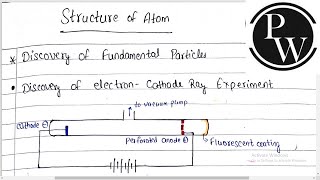 Structure of Atom
PW
* Discovery of Fundamental Particles
• Discovery of electron - Cathode Ray Experiment
→ to vacuum pump
Cathode ⊖
Perforated anode ⊕
Fluorescent coating